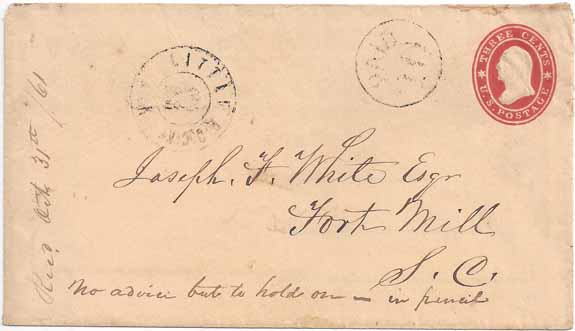 LITTLE ROCK
PAID
THREE CENTS
U.S. POSTAGE
Joseph. F. White Esqr
Fort Mill
S. C.
No advice but to hold on — in pencil
Recd Oct 31st /61